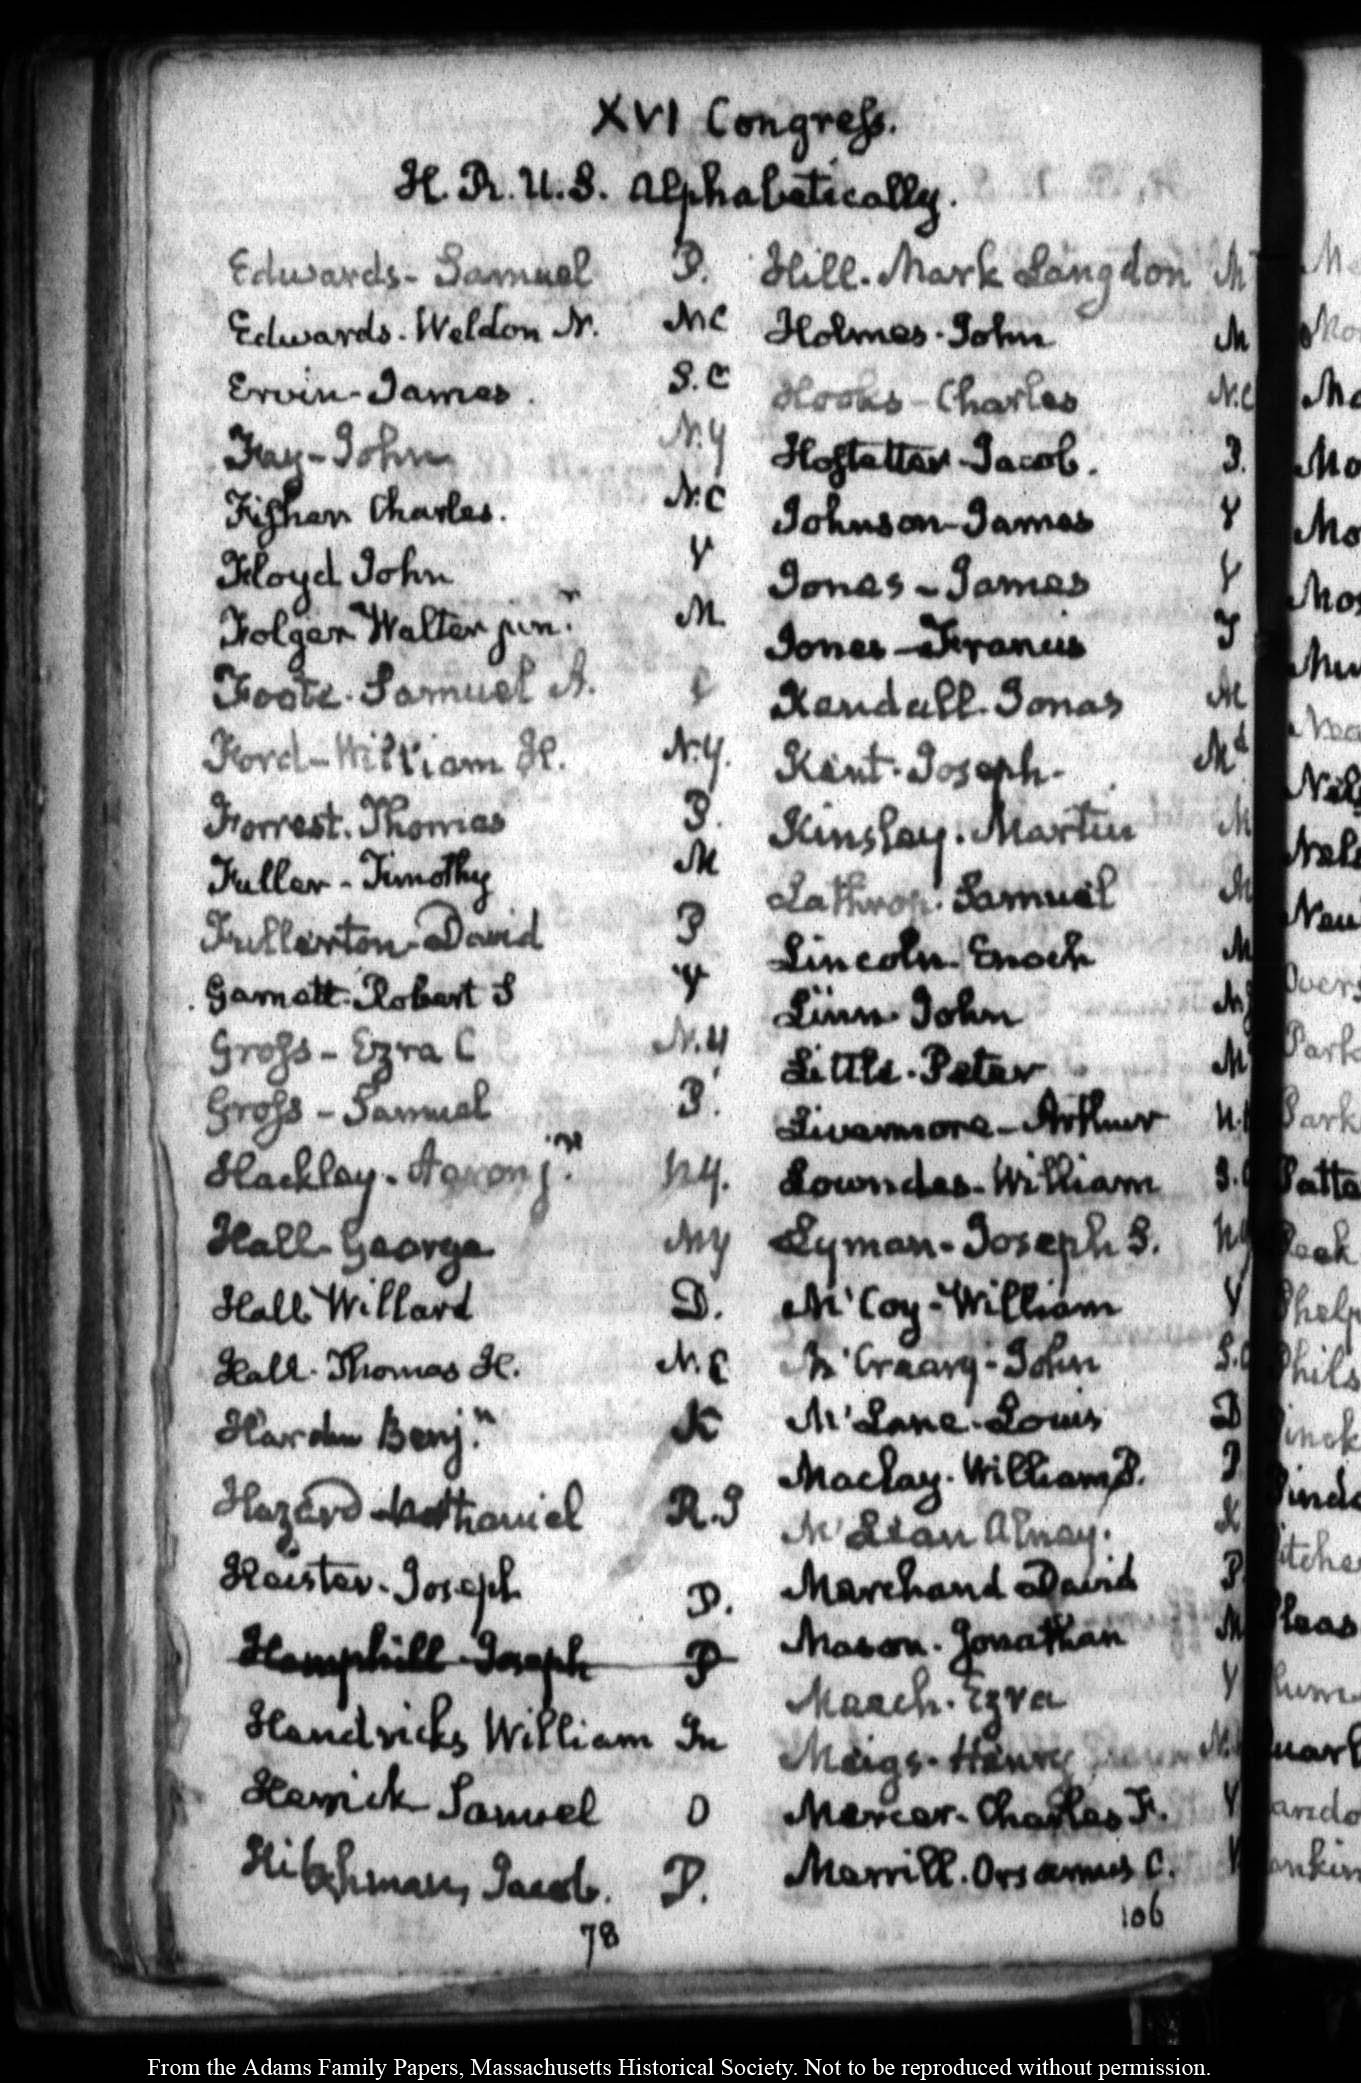 XVI Congress.
H. R. U. S. Alphabetically.
Edwards - Samuel P.
Edwards - Weldon N. N.C
Ervin - James S. C
Fay - John N. Y
Fisher Charles. N. C
Floyd John V
Folger Walter junr. M.
Foote - Samuel A. C
Ford - William H. N. Y.
Forrest. Thomas P.
Fuller - Timothy M
Fullerton - David P
Garnett - Robert S V
Gross - Ezra C N. Y
Gross - Samuel P.
Hackley - Aaron jr. N Y.
Hall - George N Y
Hall Willard D.
Hall - Thomas H. N. C
Hardin Benj.n K
Hazard - Nathaniel R. I
Heister - Joseph P.
Hemphill - Joseph P
Hendricks William In
Herrick - Samuel O
Hibshman, Jacob. P.
78
Hill - Mark Langdon M
Holmes - John M
Hooks - Charles N. C
Hostetter - Jacob. P.
Johnson - James V
Jones - James V
Jones - Francis T
Kendall - Jonas M
Kent - Joseph - Md
Kinsley. Martin M
Lathrop. Samuel M
Lincoln - Enoch M
Linn - John N.J
Little - Peter M
Livermore - Arthur N.
Lowndes - William S.C
Lyman - Joseph S. N Y
M'Coy - William V
M'Creary - John S.C
M'Lane - Louis D
Maclay - William P. P
M'Lean Alney. K
Marchand David P
Mason - Jonathan M
Meech - Ezra V
Meigs - Henry N.
Mercer - Charles F. V
Merrill - Orsamus C. V
106
Me
Mo
Mo
Mo
Mos
Mu
Nea
Nels
Over
Park
Park
Patte
eek
Phelp
Phils
inck
Pind
itche
leas
lum
uarl
ando
ankin
From the Adams Family Papers, Massachusetts Historical Society. Not to be reproduced without permission.